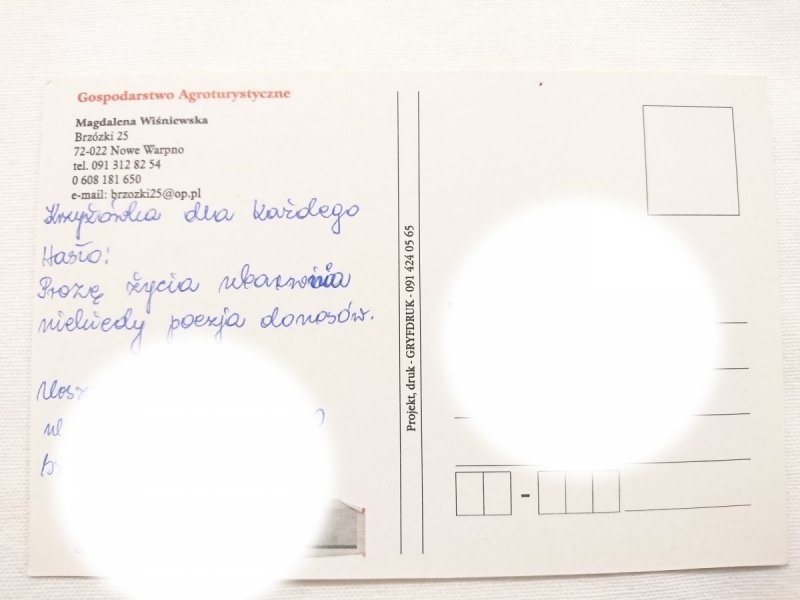 Gospodarstwo Agroturystyczne
Magdalena Wiśniewska
Brzózki 25
72-022 Nowe Warpno
tel. 091 312 82 54
0 608 181 650
e-mail: brzozki25@op.pl
Krzyżówka dla każdego
Hasło:
Prozę życia
niekiedy poezja donosów.
Projekt, druk - GRYFDRUK - 091 424 05 65